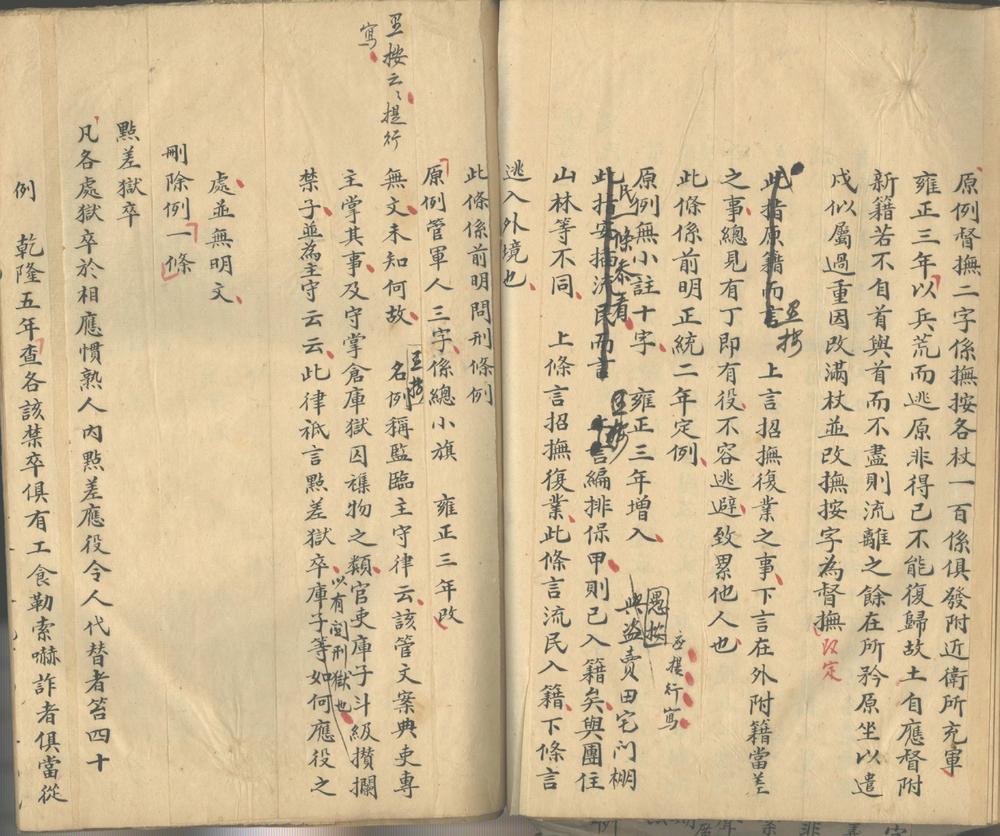 原例督撫二字係撫按各杖一百係俱發附近衛所充軍
雍正三年以兵荒而逃原非得已不能復歸故土自應督附
新籍若不自首與首而不盡則流離之餘在所矜原坐以遣
戍似屬過重因改滿杖並改撫按字為督撫改定
此指原籍而言 上言招撫復業之事下言在外附籍當差
之事總見有丁即有役不容逃避致累他人也
此條係前明正統二年定例
應提行寫
愚按
原例無小註十字 雍正三年增入
與盜賣田宅門棚
民一條參看
此指安插流民而言 言編排保甲則已入籍矣與團住
山林等不同 上條言招撫復業此條言流民入籍下條言
逃入外境也
此條係前明問刑條例
原例管軍人三字係總小旗 雍正三年改
按云云提行
寫
無文未知何故 名例稱監臨主守律云該管文案典吏專
主掌其事及守掌倉庫獄囚襍物之類官吏庫子斗級攢攔
以有關刑獄也
禁子並為主守云云此律祇言點差獄卒庫子等如何應役之
處並無明文
刪除例一條
點差獄卒
凡各處獄卒於相應慣熟人內點差應役令人代替者笞四十
例 乾隆五年查各該禁卒俱有工食勒索嚇詐者俱當從